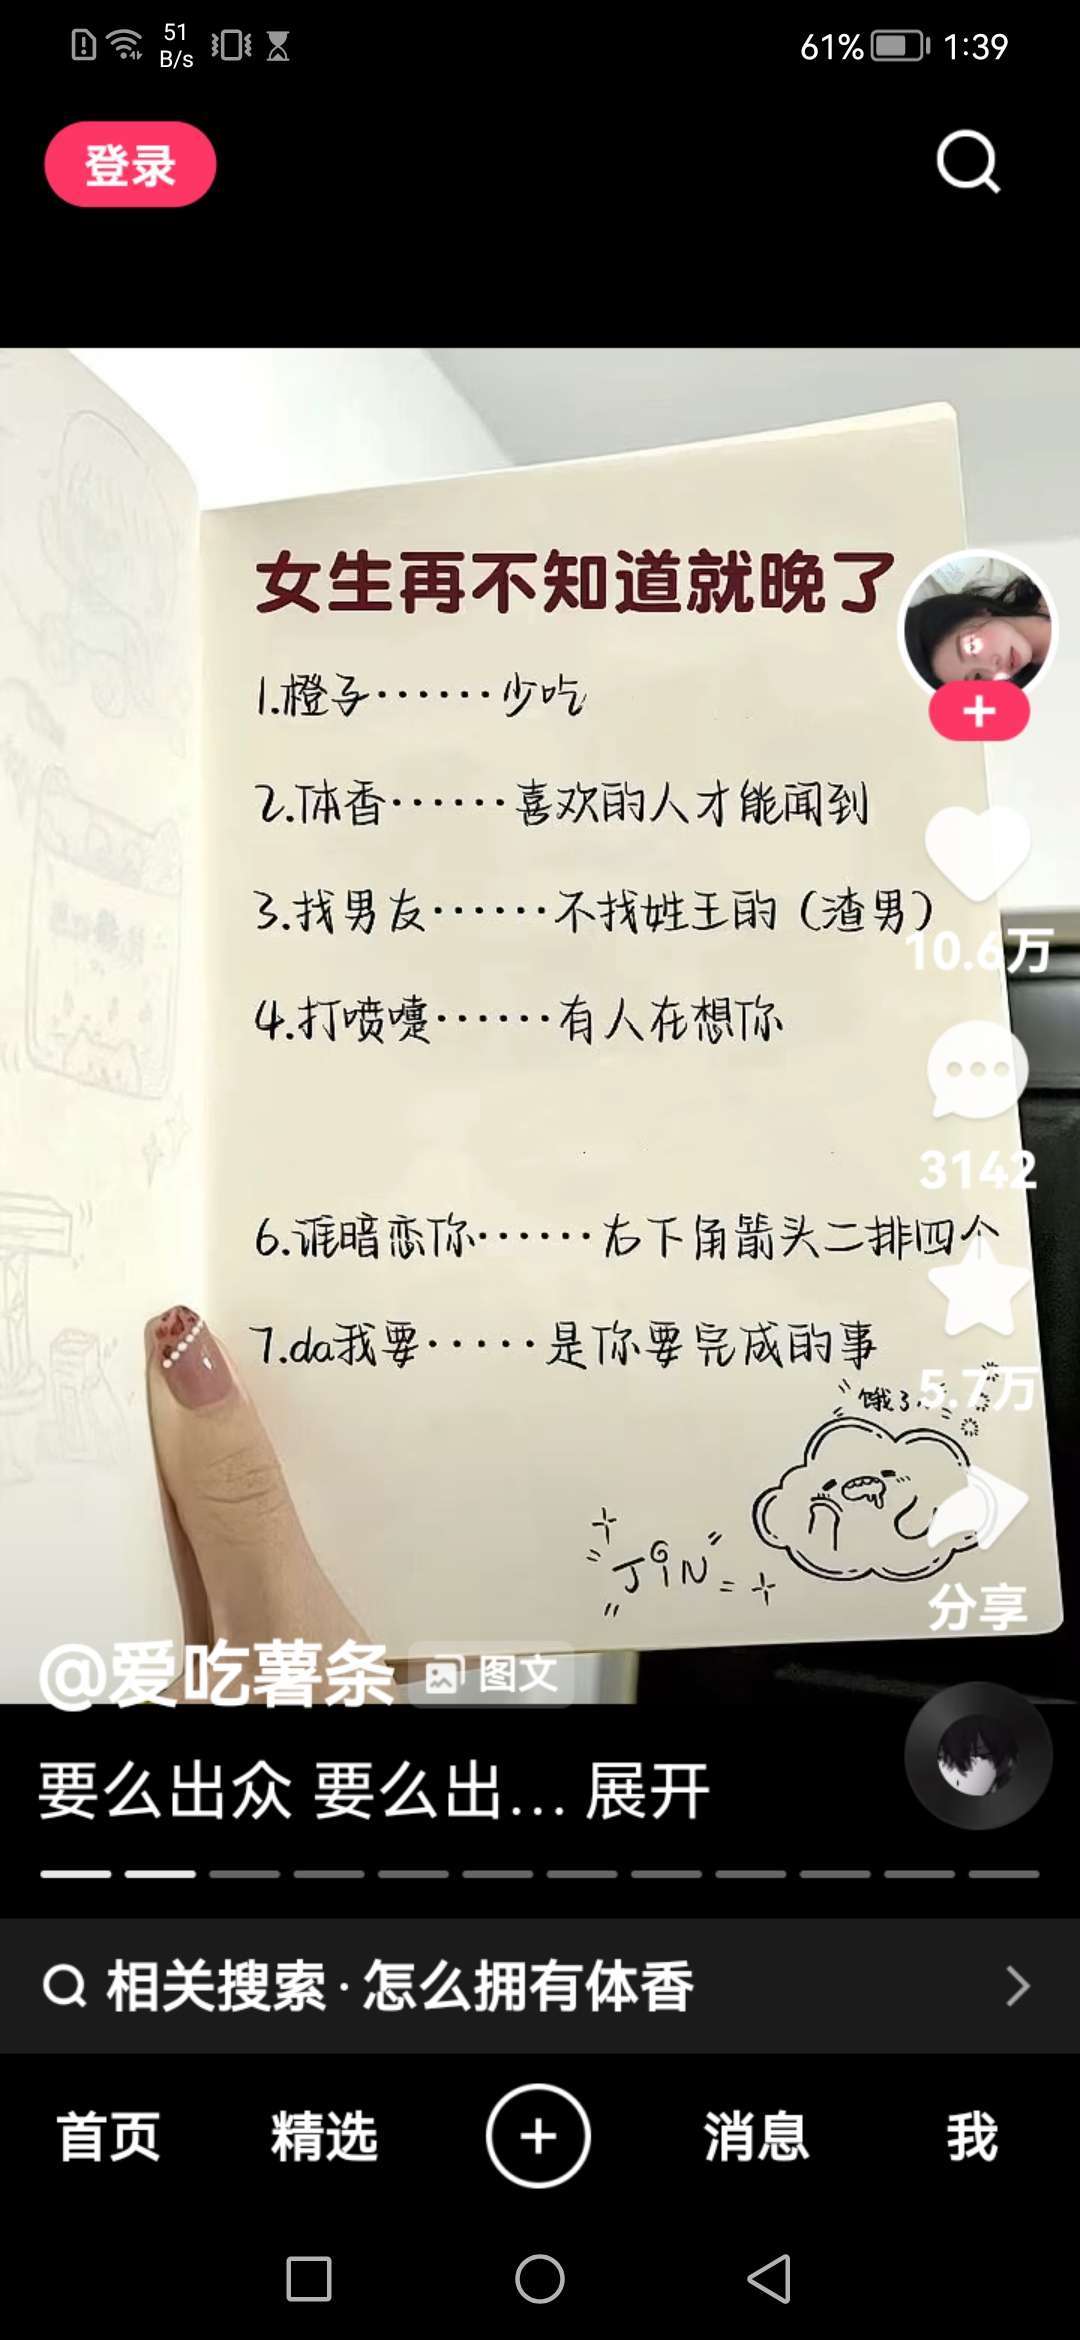 51
B/s
61%
1:39
登录
女生再不知道就晚了
1.橙子······少吃
2.体香······喜欢的人才能闻到
3.找男友······不找姓王的（渣男）
10.6万
4.打喷嚏······有人在想你
3142
6.谁暗恋你······右下角箭头二排四个
7.da我要·····是你要完成的事
饿了
5.7万
JGIN
分享
@爱吃薯条
图文
要么出众 要么出... 展开
相关搜索·怎么拥有体香
首页
精选
消息
我